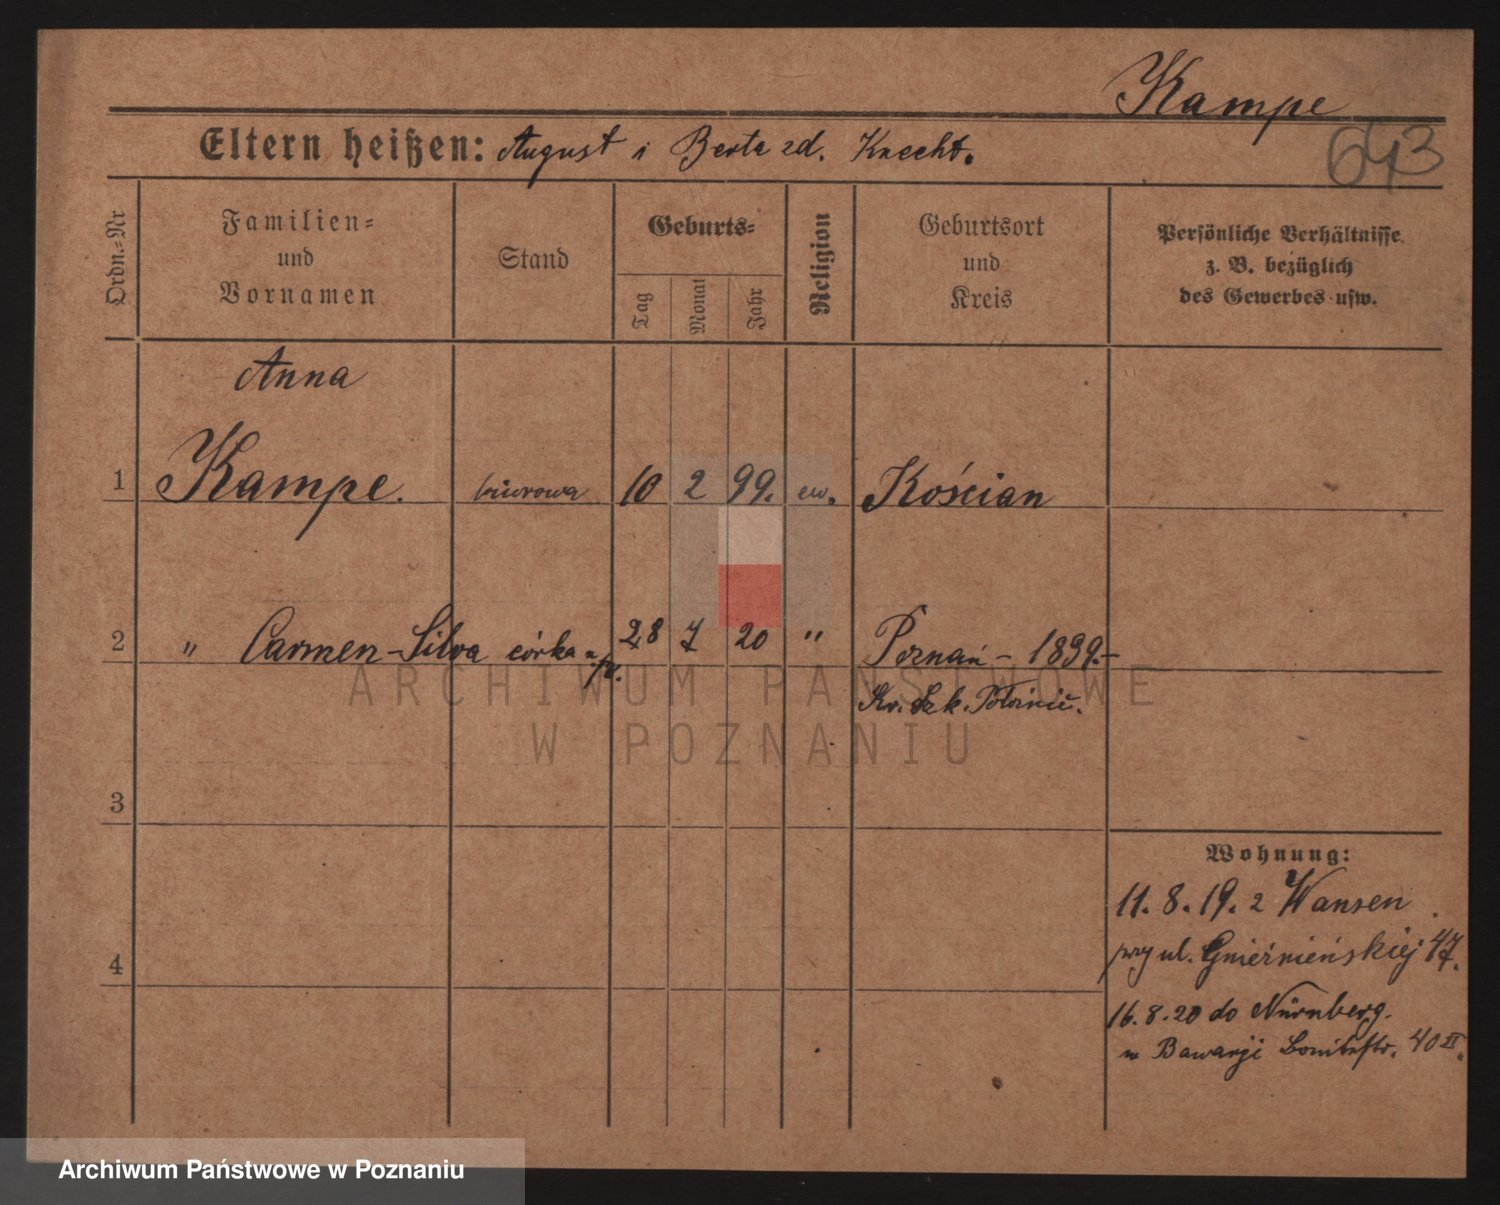 Kampe
643
Eltern heißen: August i Berta zd. Knecht.
Ordn.=Nr
Familien=
und
Vornamen
Stand
Geburts=
Tag
Monat
Jahr
Religion
Geburtsort
und
Kreis
Persönliche Verhältnisse
z. B. bezüglich
des Gewerbes usw.
Anna
1 Kampe. biurowa 10 2 99. ew. Kościan
2 " Carmen-Silva córka 28 7 20 " Poznań - 1899.-
3
Wohnung:
11. 8. 19. z Wansen
przy ul. Gnieźnieńskiej 47.
4
16. 8. 20 do Nürnberg.
w Bawarji 40 II.
ARCHIWUM PAŃSTWOWE
W POZNANIU
Archiwum Państwowe w Poznaniu